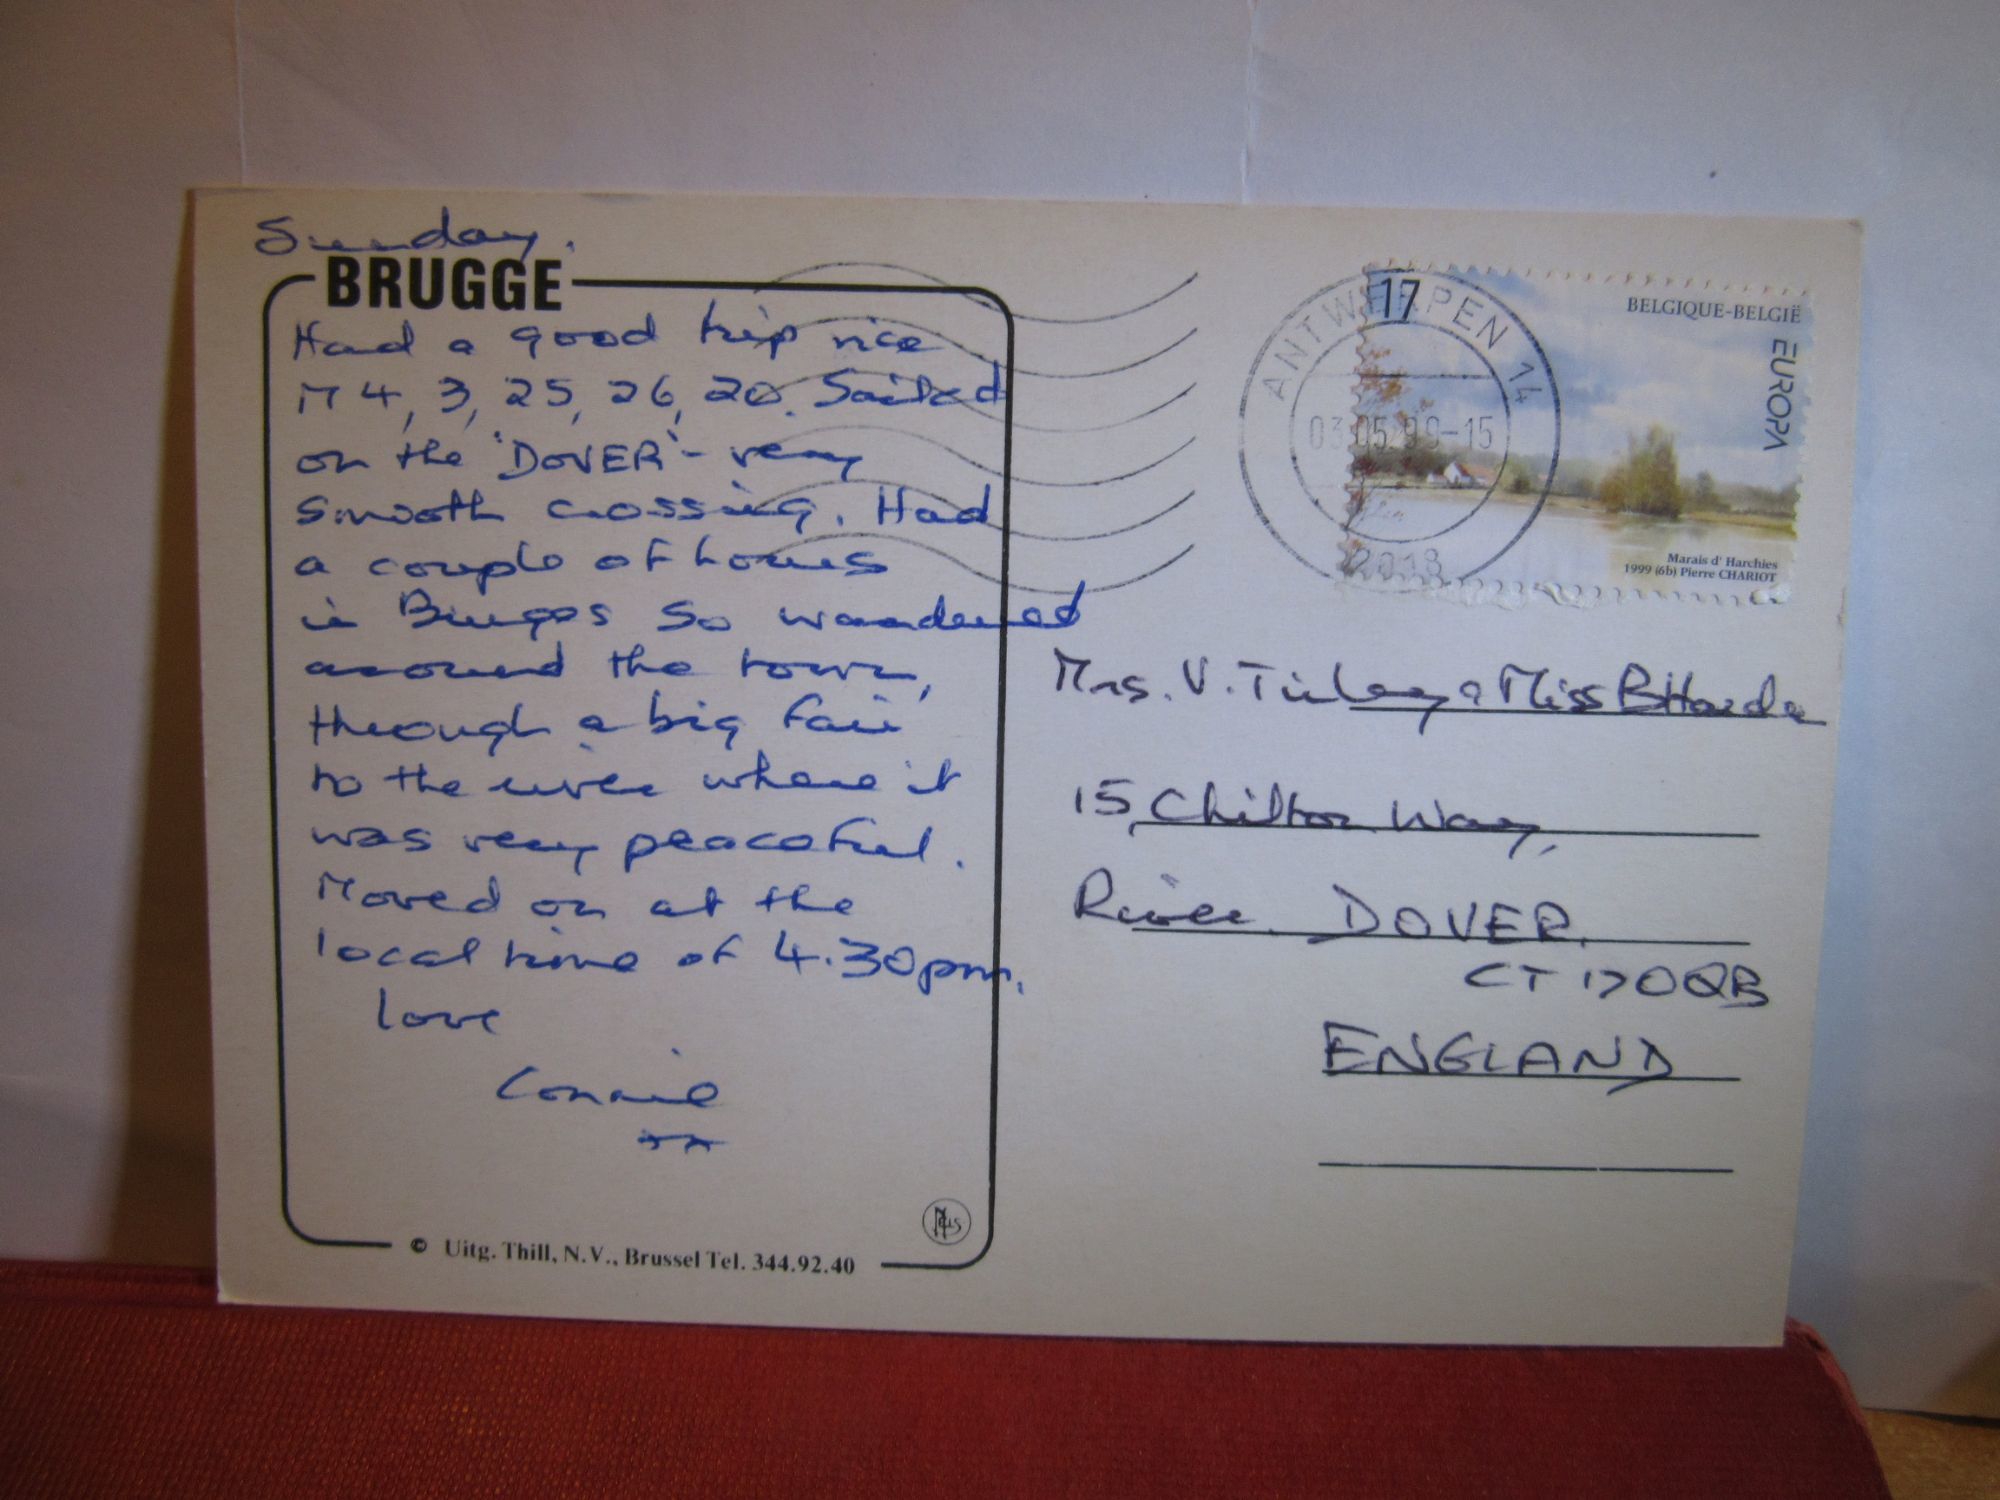 Sunday.
BRUGGE
Had a good trip nice
M4, 3, 25, 26, 20. Sailed
on the 'DOVER' - very
smooth crossing. Had
a couple of hours
in Bruges so wandered
around the town,
through a big fair
to the river where it
was very peaceful.
Moved on at the
local time of 4.30pm.
love
Connie
xx
© Uitg. Thill, N.V., Brussel Tel. 344.92.40
ANTWERPEN 14
03.05.99-15
2018
17
BELGIQUE-BELGIË
EUROPA
Marais d' Harchies
1999 (6b) Pierre CHARIOT
Mrs. V. & Miss B
15, Chilton Way,
River DOVER.
CT17 0QB
ENGLAND